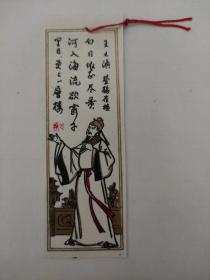 王之涣 登鹳雀楼
白日依山尽黄
河入海流欲穷千
里目更上一层楼